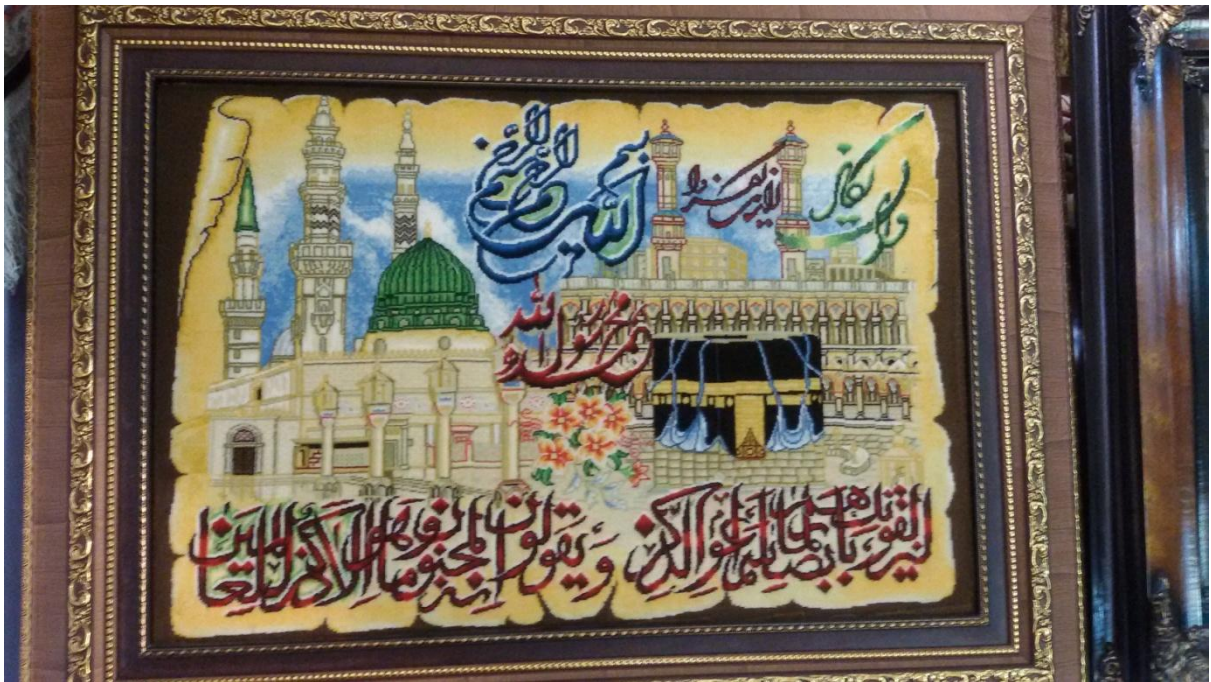 بسم الله الرحمن الرحيم
وان يكاد الذين كفروا
محمد رسول الله
ليزلقونك بابصارهم لما سمعوا الذكر و يقولون انه لمجنون وما هو الا ذكر للعالمين